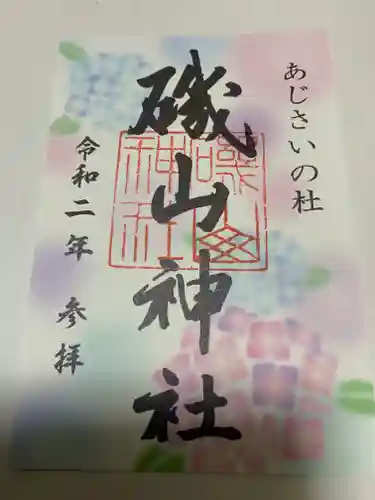 あじさいの杜
磯山神社
磯山
神社
令和二年 参拝